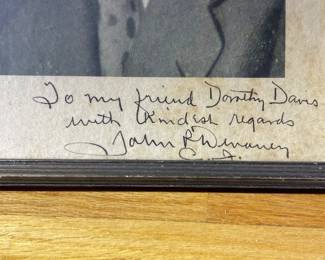 To my friend Dorothy Davis
with kindest regards
John P. Devaney